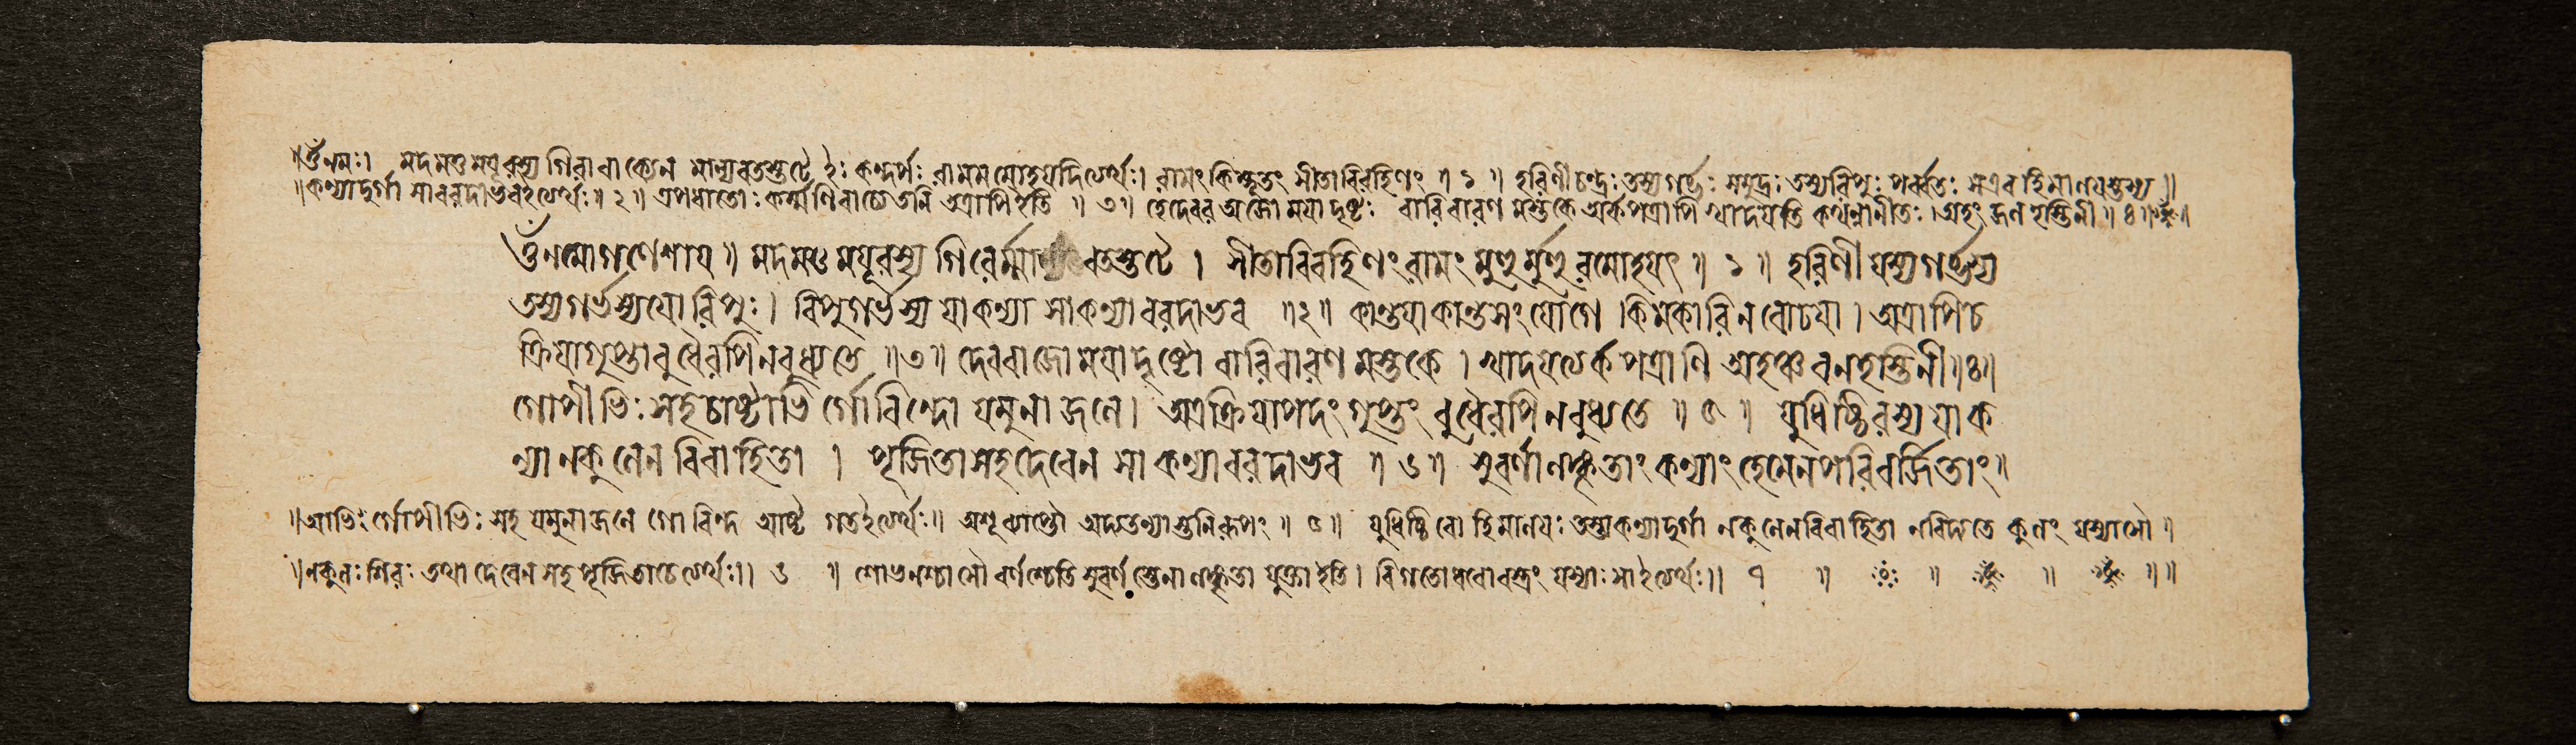 ॥ওঁনমঃ। মদমত্তময়ূৰস্য গিৰাবাক্যেন মাল্যবতস্তটে ইঃ কন্দর্পঃ ৰামমমোহয়দিত্যর্থঃ। ৰামং কিম্ভূতং সীতাবিৰহিণং ॥ ১ ॥ হৰিণীচন্দ্রঃ তস্যগর্ভঃ সমুদ্রঃ তস্যৰিপুঃ পর্ব্বতঃ সএবহিমালয়স্তস্য॥
॥কন্যাদুর্গা সাবৰদাভবইত্যর্থঃ॥ ২ ॥ কর্ম্মণিবাচ্যেতনি অত্রাপিইতি ॥ ৩ ॥ হেদেবৰ অজোময়াদৃষ্টঃ বাৰিবাৰণমস্তকে অর্কপত্রাণি খাদয়তি ।অহং জলহস্তিনী॥ ৪ ॥
ওঁনমোগণেশায় ॥ মদমত্তময়ূৰস্য গিৰের্ম্মাল্যবতস্তটে । সীতাবিৰহিণংৰামং মুহুর্মুহুৰমোহয়ৎ ॥ ১ ॥ হৰিণীযস্যগর্ভস্য
তস্যগর্ভস্যযোৰিপুঃ। ৰিপুগর্ভস্য যাকন্যা সাকন্যাবৰদাভব ॥২॥ কান্তয়াকান্তসংযোগে ।কিমকাৰিনবোঢয়া। অত্রাপিচ
ক্রিয়াগুপ্তাবুধৈৰপিনবুধ্যতে ॥৩॥ দেবৰাজোময়াদৃষ্টো বাৰিবাৰণমস্তকে । খাদয়ত্যর্কপত্রাণি অহঞ্চবনহস্তিনী॥৪॥
গোপীভিঃসহচাষ্টাভি র্গোবিন্দো যমুনাজলে। অত্রক্রিয়াপদংগুপ্তং বুধৈৰপিনবুধ্যতে ॥ ৫ ॥ যুধিষ্ঠিৰস্য যাক
ন্যানকুলেনবিবাহিতা । পূজিতাসহদেবেন সাকন্যাবৰদাভব ॥ ৬ ॥ সুবর্ণালঙ্কৃতাংকন্যাংহেমেনপৰিবর্জিতাং॥
॥আভিঃ র্গোপীভিঃ সহ যমুনাজলে গোবিন্দ আষ্ট গতইত্যর্থঃ॥ ॥ ৫ ॥ যুধিষ্ঠিৰোহিমালয়ঃ তস্যকন্যাদুর্গা নকুলেনবিবাহিতা নবিদ্যতে কুলং যস্যাসৌ ॥
॥নকুলঃ শিৱঃ তথা দেবেনসহপূজিতাচেত্যর্থঃ॥ ৬ ॥ শোভনশ্চাসৌবর্ণশ্চেতি সুবর্ণস্তেনালঙ্কৃতা যুক্তাইতি। যস্যাঃ সাইত্যর্থঃ॥ ৭ ॥